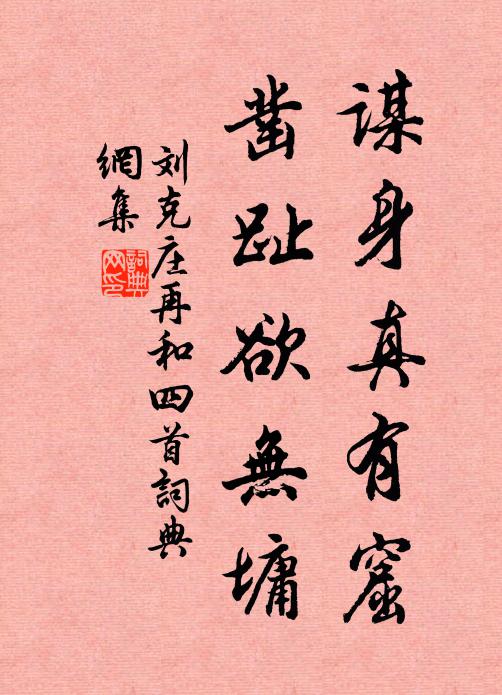 謀身真有窟
凿趾欲無墉
刘克庄再和四首詞典
網集
詞典
网印